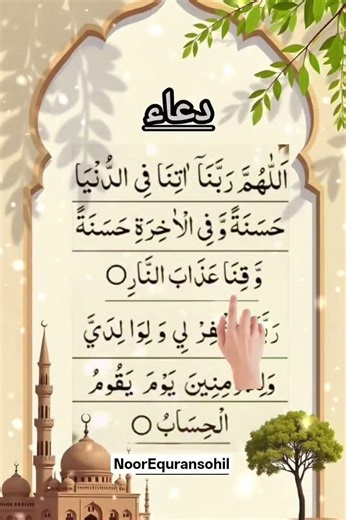 دعاء
اَللّٰهُمَّ رَبَّنَآ اٰتِنَا فِي الدُّنْيَا
حَسَنَةً وَّفِي الْاٰخِرَةِ حَسَنَةً
وَّقِنَا عَذَابَ النَّارِ ○
لِي وَلِوَا لِدَيَّ
يَوْمَ يَقُومُ
الْحِسَابُ ○
NoorEquransohil